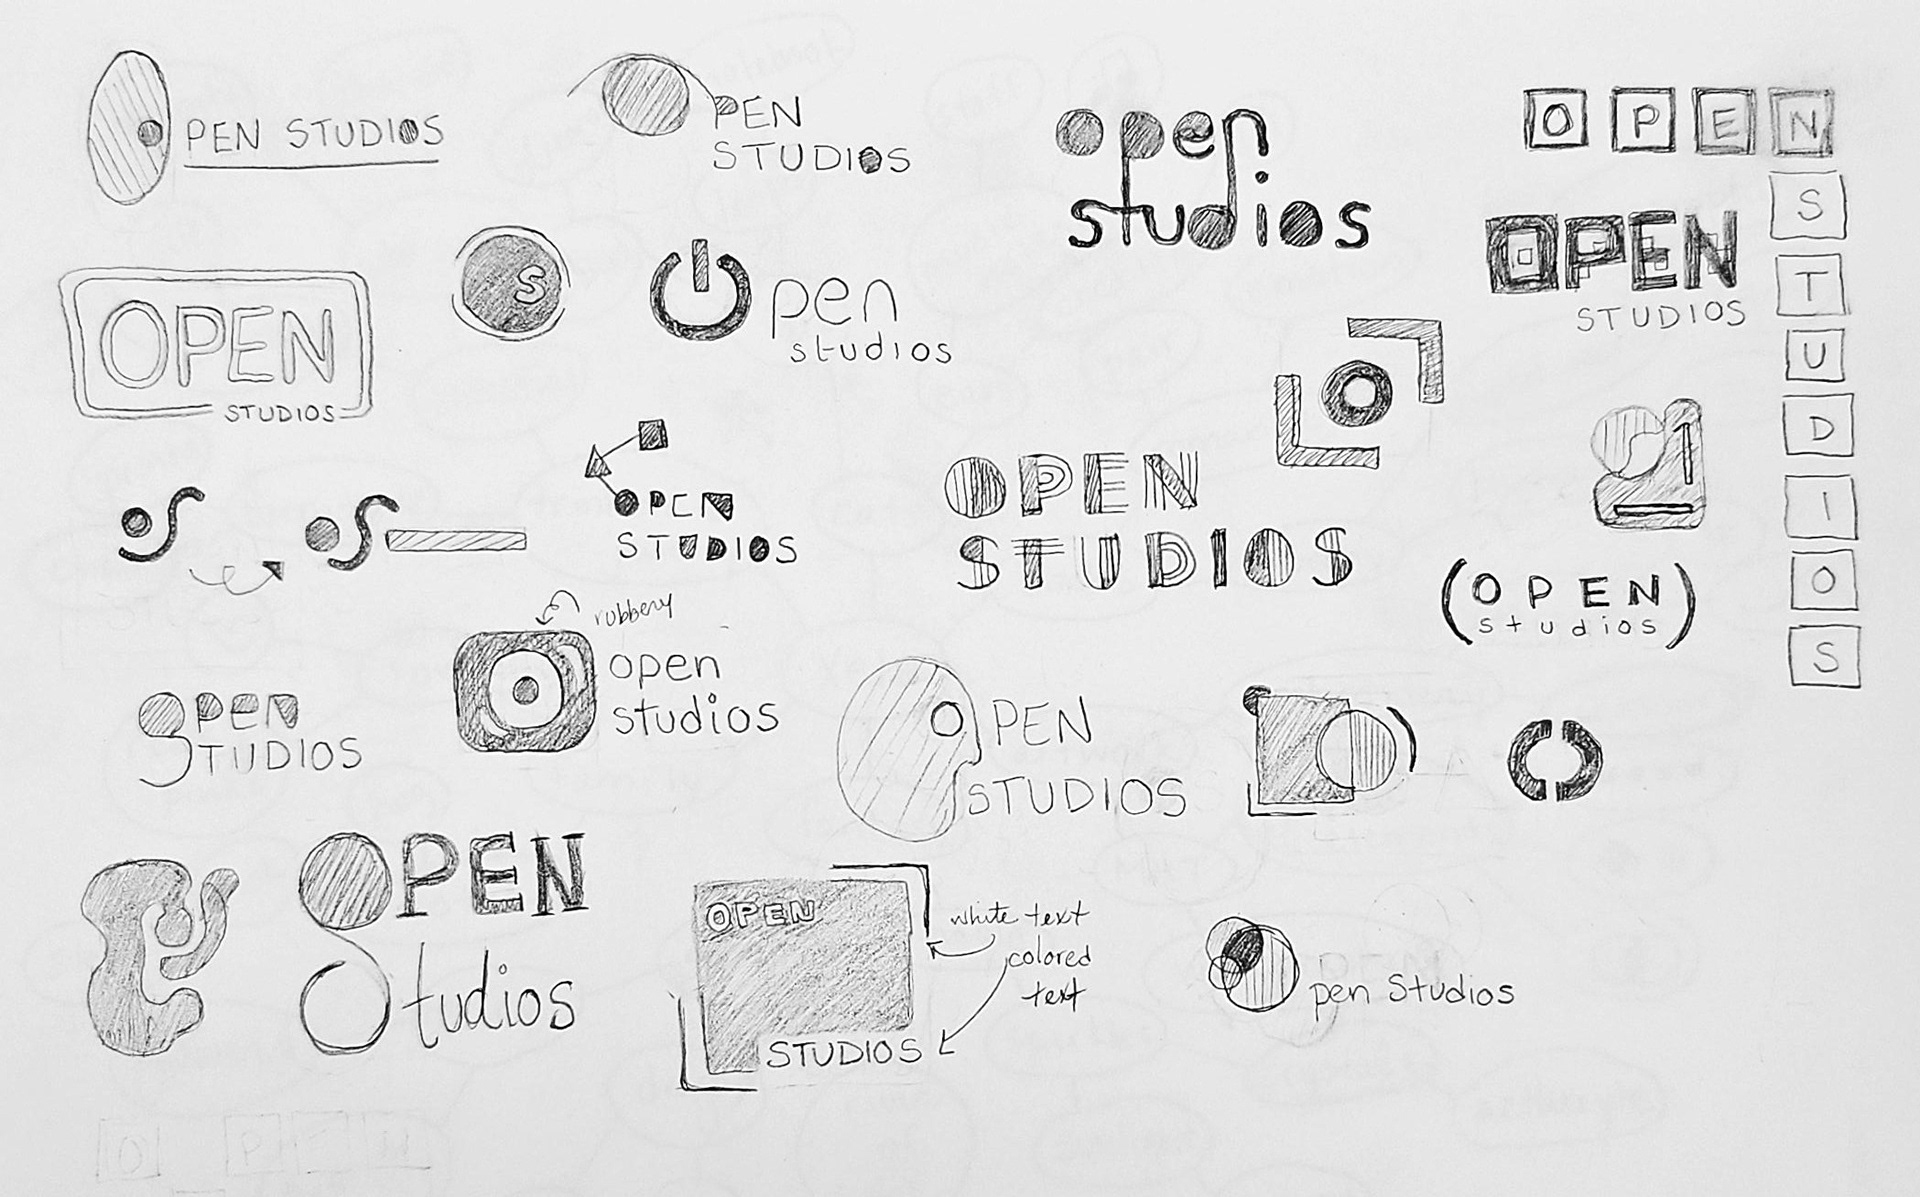 PEN STUDIOS
PEN
STUDIOS
open
studios
OPEN
STUDIOS
OPEN
STUDIOS
OPEN
STUDIOS
S
pen
studios
OS
OS
OPEN
STUDIOS
OPEN
STUDIOS
(OPEN
studios)
rubbery
open
studios
OPEN
STUDIOS
PEN
STUDIOS
OPEN
Studios
OPEN
STUDIOS
white text
colored
text
pen Studios
O P E N